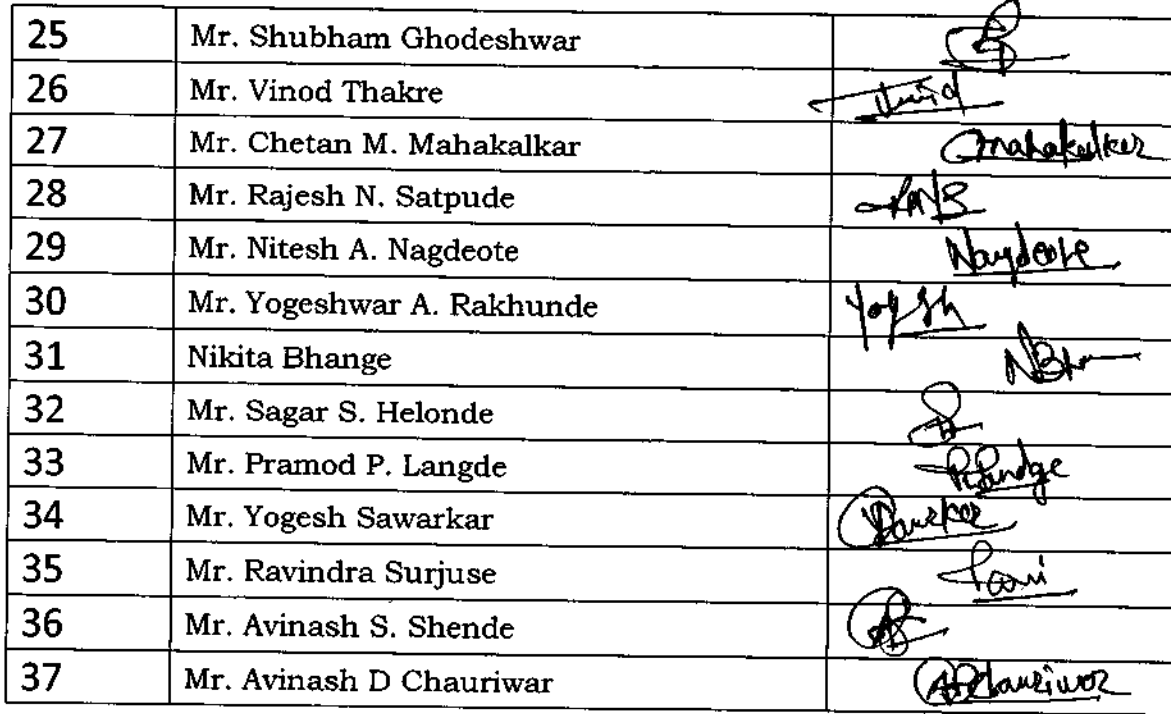 25 Mr. Shubham Ghodeshwar
26 Mr. Vinod Thakre
27 Mr. Chetan M. Mahakalkar Cmahakalkar
28 Mr. Rajesh N. Satpude
29 Mr. Nitesh A. Nagdeote Nagdeote
30 Mr. Yogeshwar A. Rakhunde Yogesh
31 Nikita Bhange
32 Mr. Sagar S. Helonde
33 Mr. Pramod P. Langde
34 Mr. Yogesh Sawarkar
35 Mr. Ravindra Surjuse
36 Mr. Avinash S. Shende
37 Mr. Avinash D Chauriwar